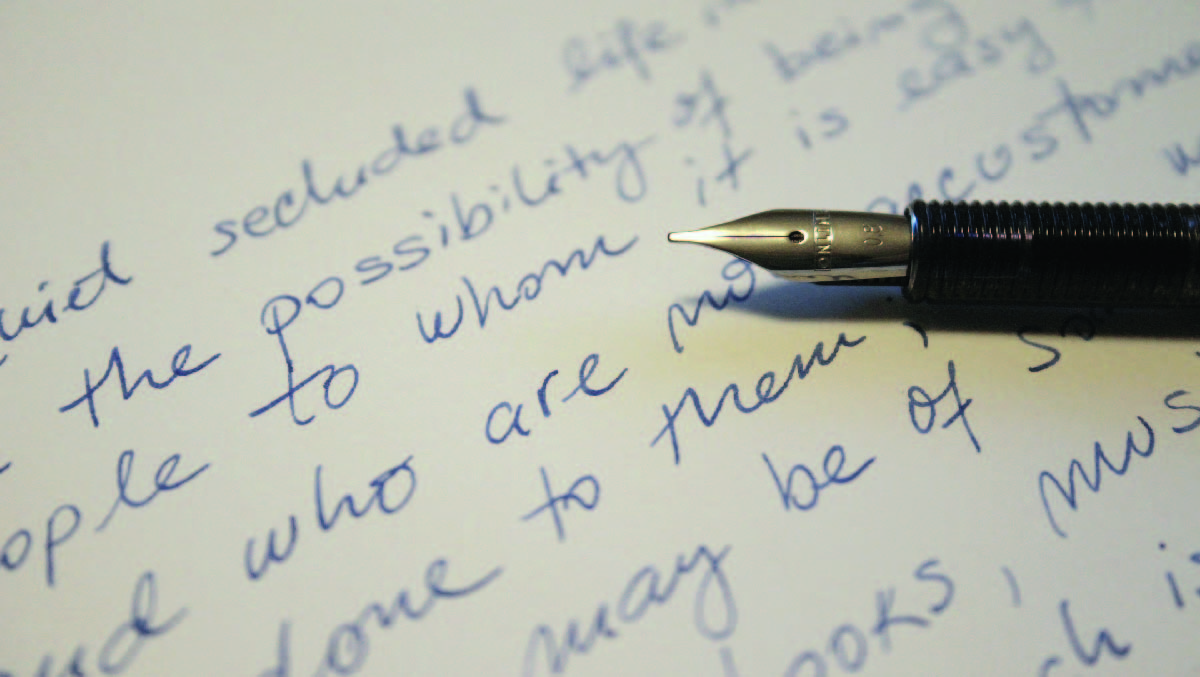 uiet secluded life in
the possibility of being
ople to whom it is easy
and who are no accustome
done to them,
may be of so
ooks, mus
ch is
0.8